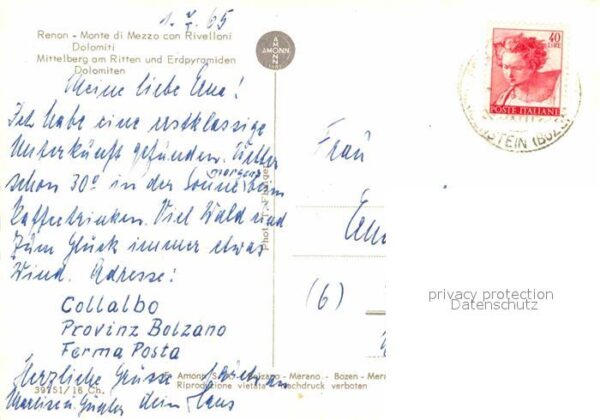 1. V. 65
Renon - Monte di Mezzo con Rivelloni
Dolomiti
Mittelberg am Ritten und Erdpyramiden
Dolomiten
AMONN
40
LIRE
POSTE ITALIANE
STEIN (BOZEN
Meine liebe Erna!
Ich habe eine erstklassige
Unterkunft gefunden. Wetter
schon 30° in der Sonne morgens beim
Kaffeetrinken. Viel Wald und
zum Glück immer etwas
Wind. Adresse:
Collalbo
Provinz Bolzano
Ferma Posta
Herzliche Grüsse
Dein Hans
Frau
(6)
privacy protection
Datenschutz
Amonn - Bolzano - Merano - Bozen - Mer
Riproduzione vietata - Nachdruck verboten
39251/16 Ch.